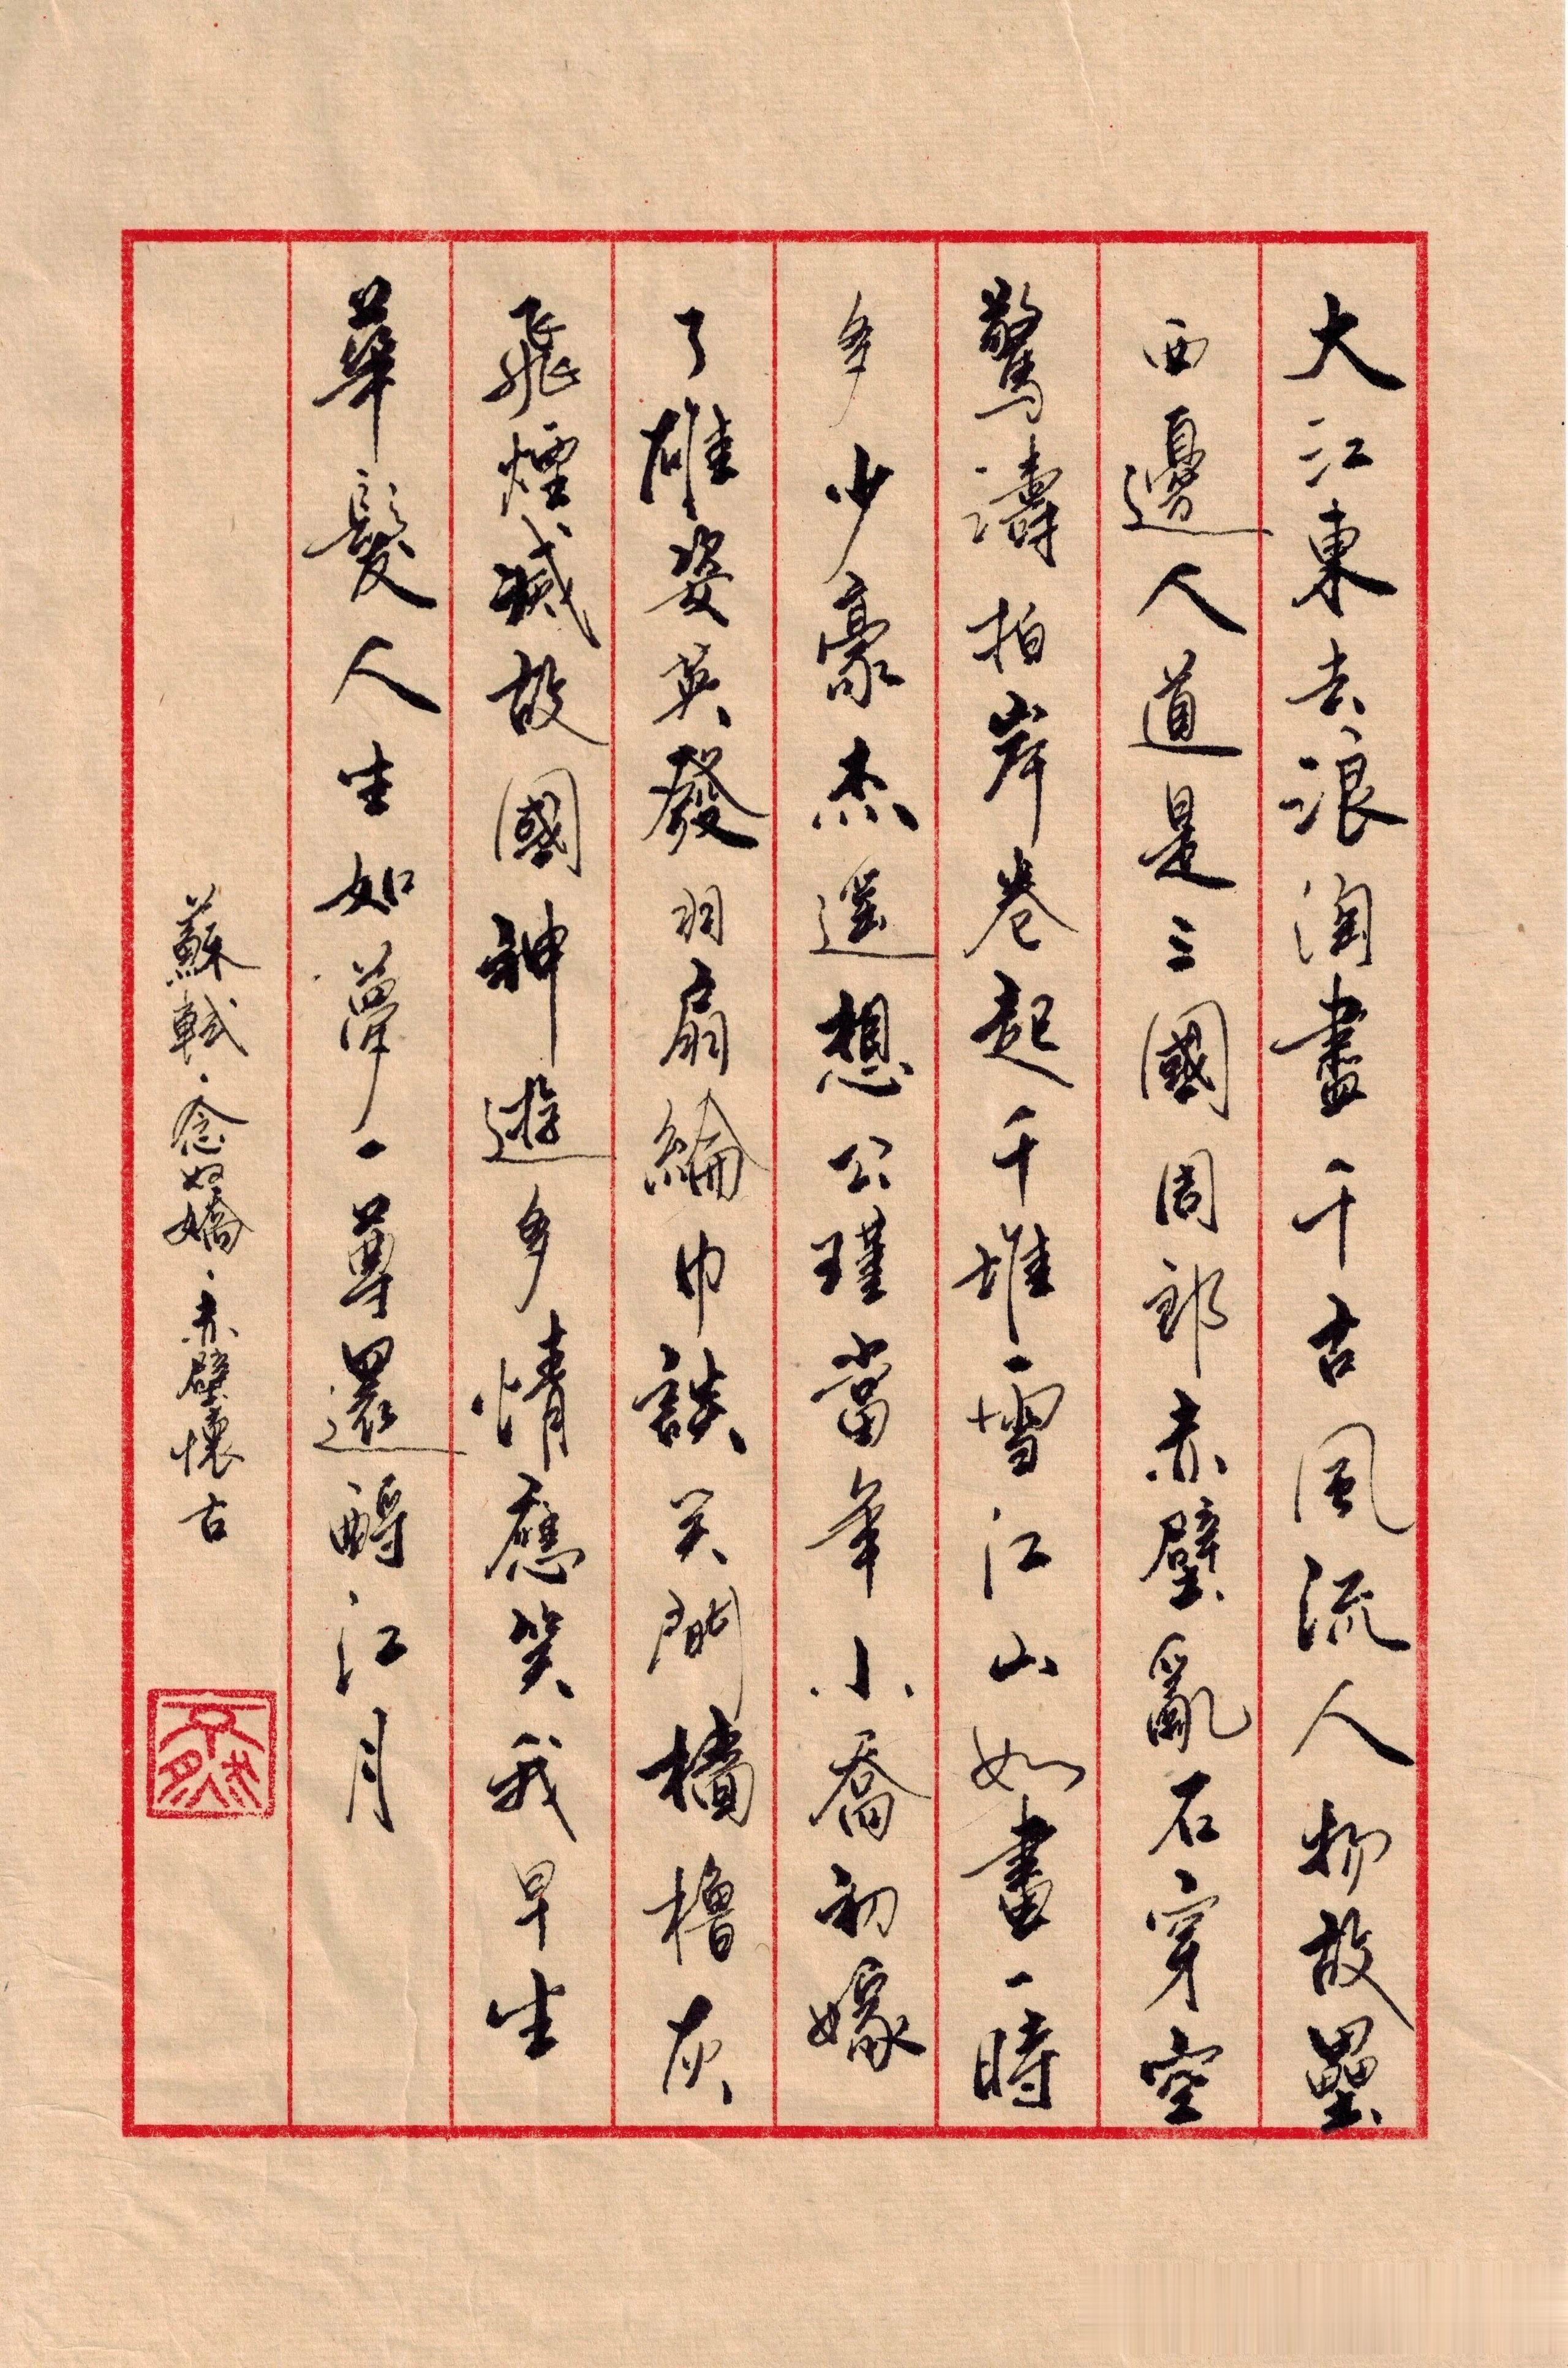 大江東去浪淘盡千古風流人物故壘
西邊人道是三國周郎赤壁亂石穿空
驚濤拍岸卷起千堆雪江山如畫一時
多少豪杰遥想公瑾當年小喬初嫁
了雄姿英發羽扇綸巾談笑間檣櫓灰
飛煙滅故國神遊多情應笑我早生
華髮人生如夢一尊還酹江月
蘇軾·念奴嬌·赤壁懷古